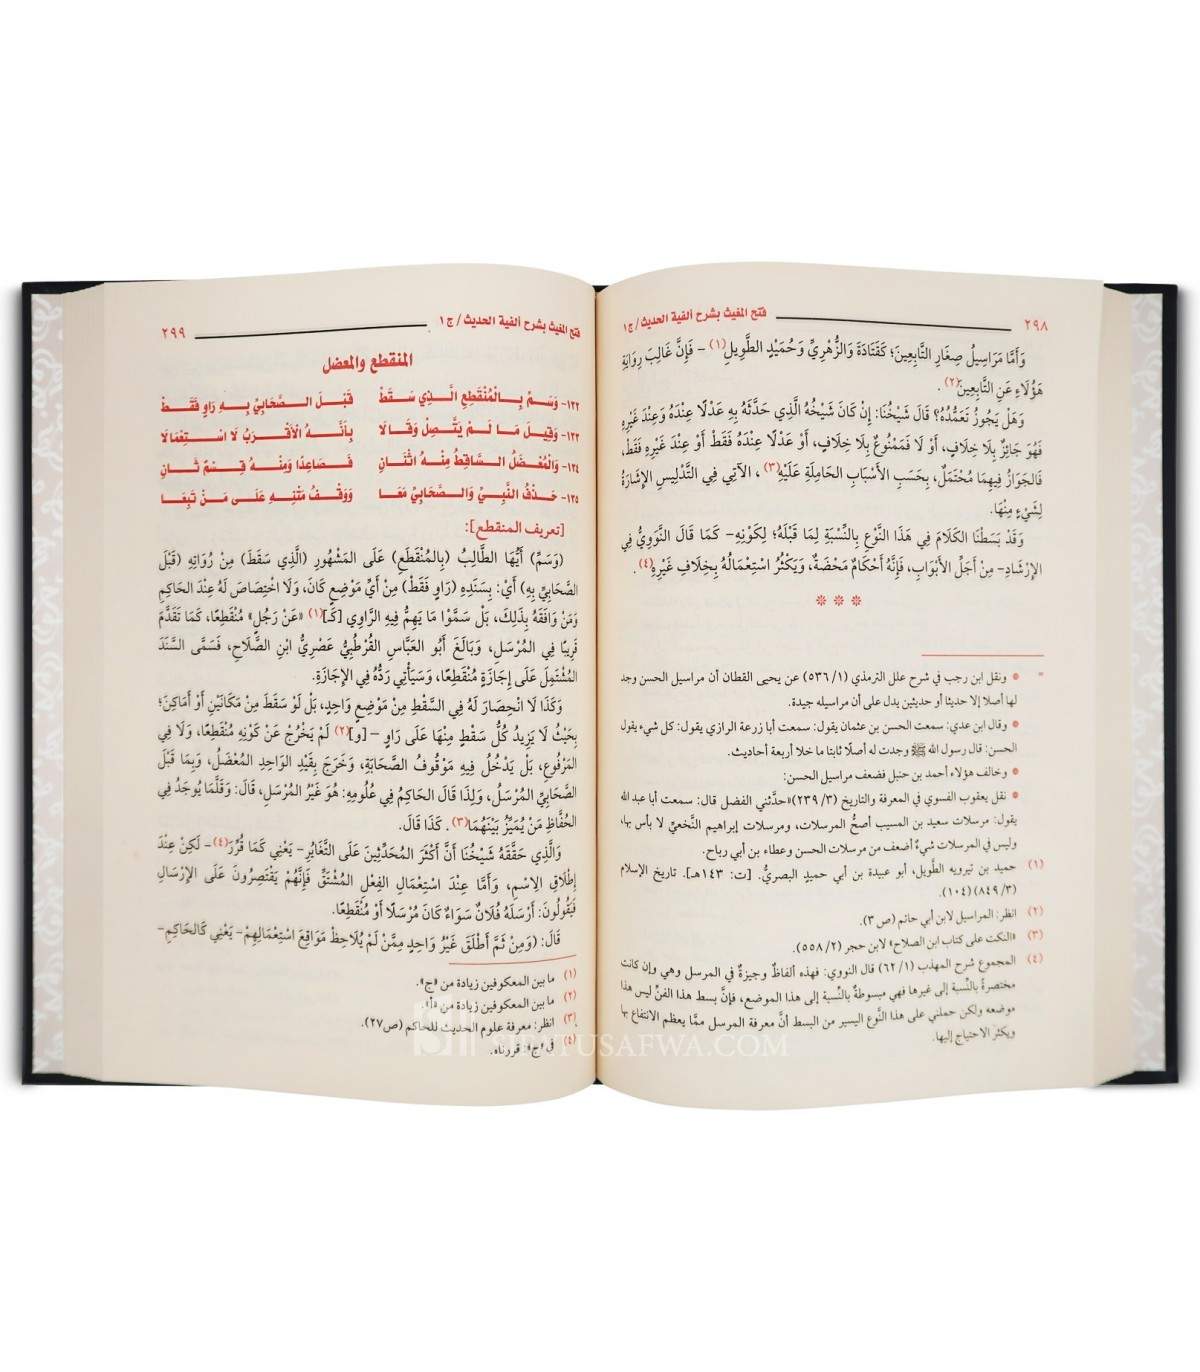 فتح المغيث بشرح ألفية الحديث / ج ١ ٢٩٨
وَأَمَّا مَرَاسِيلُ صِغَارِ التَّابِعِينَ؛ كَقَتَادَةَ وَالزُّهْرِيِّ وَحُمَيْدٍ الطَّوِيلِ(١) – فَإِنَّ غَالِبَ رِوَايَةِ
هَؤُلَاءِ عَنِ التَّابِعِينَ(٢).
وَهَلْ يَجُوزُ تَعَمُّدُهُ؟ قَالَ شَيْخُنَا: إِنْ كَانَ شَيْخُهُ الَّذِي حَدَّثَهُ بِهِ عَدْلًا عِنْدَهُ وَعِنْدَ غَيْرِهِ
فَهُوَ جَائِزٌ بِلَا خِلَافٍ، أَوْ لَا فَمَمْنُوعٌ بِلَا خِلَافٍ، أَوْ عَدْلًا عِنْدَهُ فَقَطْ أَوْ عِنْدَ غَيْرِهِ فَقَطْ،
فَالجَوَازُ فِيهِمَا مُحْتَمَلٌ، بِحَسَبِ الأَسْبَابِ الحَامِلَةِ عَلَيْهِ(٣)، الآتِي فِي التَّدْلِيسِ الإِشَارَةُ
لِشَيْءٍ مِنْهَا.
وَقَدْ بَسَطْنَا الكَلَامَ فِي هَذَا النَّوْعِ بِالنِّسْبَةِ لِمَا قَبْلَهُ؛ لِكَوْنِهِ– كَمَا قَالَ النَّوَوِيُّ فِي
الإِرْشَادِ– مِنْ أَجَلِّ الأَبْوَابِ، فَإِنَّهُ أَحْكَامٌ مَحْضَةٌ، وَيَكْثُرُ اسْتِعْمَالُهُ بِخِلَافِ غَيْرِهِ(٤).
* * *
= • ونقل ابن رجب في شرح علل الترمذي (١/ ٥٣٦) عن يحيى القطان أن مراسيل الحسن وجد
لها أصلا إلا حديثا أو حديثين يدل على أن مراسيله جيدة.
• وقال ابن عدي: سمعت الحسن بن عثمان يقول: سمعت أبا زرعة الرازي يقول: كل شيء يقول
الحسن: قال رسول الله ﷺ وجدت له أصلًا ثابتا ما خلا أربعة أحاديث.
• وخالف هؤلاء أحمد بن حنبل فضعف مراسيل الحسن:
• نقل يعقوب الفسوي في المعرفة والتاريخ (٣/ ٢٣٩)«حدَّثني الفضل قال: سمعت أبا عبد الله
يقول: مرسلات سعيد بن المسيب أصحُّ المرسلات، ومرسلات إبراهيم النَّخعيِّ لا بأس بها،
وليس في المرسلات شيءٌ أضعف من مرسلات الحسن وعطاء بن أبي رباح.
(١) حميد بن تيرويه الطَّويل، أبو عبيدة بن أبي حميدٍ البصريُّ. [ت: ١٤٣هـ]. تاريخ الإسلام
(٣/ ٨٤٩) (١٠٤).
(٢) انظر: المراسيل لابن أبي حاتم (ص٣).
(٣) «النكت على كتاب ابن الصلاح» لابن حجر (٢/ ٥٥٨).
(٤) المجموع شرح المهذب (١/ ٦٢) قال النووي: فهذه ألفاظٌ وجيزةٌ في المرسل وهي وإن كانت
مختصرةً بالنِّسبة إلى غيرها فهي مبسوطةٌ بالنِّسبة إلى هذا الموضع، فإنَّ بسط هذا الفنِّ ليس هذا
موضعه ولكن حملني على هذا النَّوع اليسير من البسط أنَّ معرفة المرسل ممَّا يعظم الانتفاع بها
ويكثر الاحتياج إليها.
فتح المغيث بشرح ألفية الحديث / ج ١ ٢٩٩
المنقطع والمعضل
١٢٢- وَسَمِّ بِالْمُنْقَطِعِ الَّذِي سَقَطْ قَبْلَ الصَّحَابِيِّ بِهِ رَاوٍ فَقَطْ
١٢٣- وَقِيلَ مَا لَمْ يَتَّصِلْ وَقَالَا بِأَنَّهُ الْأَقْرَبُ لَا اسْتِعْمَالَا
١٢٤- وَالْمُعْضَلُ السَّاقِطُ مِنْهُ اثْنَانِ فَصَاعِدًا وَمِنْهُ قِسْمٌ ثَانِ
١٢٥- حَذْفُ النَّبِيِّ وَالصَّحَابِيِّ مَعَا وَوَقْفُ مَتْنِهِ عَلَى مَنْ تَبِعَا
[تعريف المنقطع]:
(وَسَمِّ) أَيُّهَا الطَّالِبُ (بِالمُنْقَطَعِ) عَلَى المَشْهُورِ (الَّذِي سَقَطَ) مِنْ رُوَاتِهِ (قَبْلَ
الصَّحَابِيِّ بِهِ) أَيْ: بِسَنَدِهِ (رَاوٍ فَقَطْ) مِنْ أَيِّ مَوْضِعٍ كَانَ، وَلَا اخْتِصَاصَ لَهُ عِنْدَ الحَاكِمِ
وَمَنْ وَافَقَهُ بِذَلِكَ، بَلْ سَمَّوْا مَا يَهِمُ فِيهِ الرَّاوِي [كَـ](١) «عَنْ رَجُلٍ» مُنْقَطِعًا، كَمَا تَقَدَّمَ
قَرِيبًا فِي المُرْسَلِ، وَبَالَغَ أَبُو العَبَّاسِ القُرْطُبِيُّ عَصْرِيُّ ابْنِ الصَّلَاحِ، فَسَمَّى السَّنَدَ
المُشْتَمِلَ عَلَى إِجَازَةٍ مُنْقَطِعًا، وَسَيَأْتِي رَدُّهُ فِي الإِجَازَةِ.
وَكَذَا لَا انْحِصَارَ لَهُ فِي السَّقْطِ مِنْ مَوْضِعٍ وَاحِدٍ، بَلْ لَوْ سَقَطَ مِنْ مَكَانَيْنِ أَوْ أَمَاكِنَ؛
بِحَيْثُ لَا يَزِيدُ كُلُّ سَقْطٍ مِنْهَا عَلَى رَاوٍ – [و](٢) لَمْ يَخْرُجْ عَنْ كَوْنِهِ مُنْقَطِعًا، وَلَا فِي
المَرْفُوعِ، بَلْ يَدْخُلُ فِيهِ مَوْقُوفُ الصَّحَابَةِ، وَخَرَجَ بِقَيْدِ الوَاحِدِ المُعْضَلُ، وَبِمَا قَبْلَ
الصَّحَابِيِّ المُرْسَلُ، وَلِذَا قَالَ الحَاكِمُ فِي عُلُومِهِ: هُوَ غَيْرُ المُرْسَلِ، قَالَ: وَقَلَّمَا يُوجَدُ فِي
الحُفَّاظِ مَنْ يُمَيِّزُ بَيْنَهُمَا(٣). كَذَا قَالَ.
وَالَّذِي حَقَّقَهُ شَيْخُنَا أَنَّ أَكْثَرَ المُحَدِّثِينَ عَلَى التَّغَايُرِ– يَعْنِي كَمَا قُرِّرَ(٤)– لَكِنْ عِنْدَ
إِطْلَاقِ الِاسْمِ، وَأَمَّا عِنْدَ اسْتِعْمَالِ الفِعْلِ المُشْتَقِّ فَإِنَّهُمْ يَقْتَصِرُونَ عَلَى الإِرْسَالِ
فَيَقُولُونَ: أَرْسَلَهُ فُلَانٌ سَوَاءٌ كَانَ مُرْسَلًا أَوْ مُنْقَطِعًا.
قَالَ: (وَمِنْ ثَمَّ أَطْلَقَ غَيْرُ وَاحِدٍ مِمَّنْ لَمْ يُلَاحِظْ مَوَاقِعَ اسْتِعْمَالِهِمْ– يَعْنِي كَالحَاكِمِ–
(١) ما بين المعكوفين زيادة من «ج».
(٢) ما بين المعكوفين زيادة من «أ».
(٣) انظر: معرفة علوم الحديث للحاكم (ص٢٧).
(٤) في «ج»: قررناه.
SIFATUSAFWA.COM